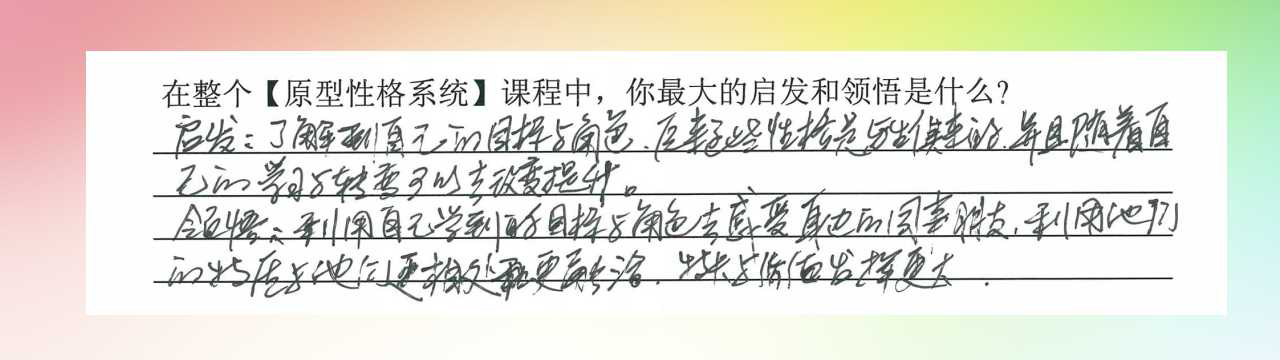 在整个【原型性格系统】课程中，你最大的启发和领悟是什么？
启发：了解到自己的目标与角色，原来这些性格是与生俱来的，并且随着自
己的学习与转变可以去改变提升。
领悟：利用自己学到的目标与角色去感受身边的同事朋友，利用他们
的特质与他们更相处和更融洽，特长与价值发挥更大．